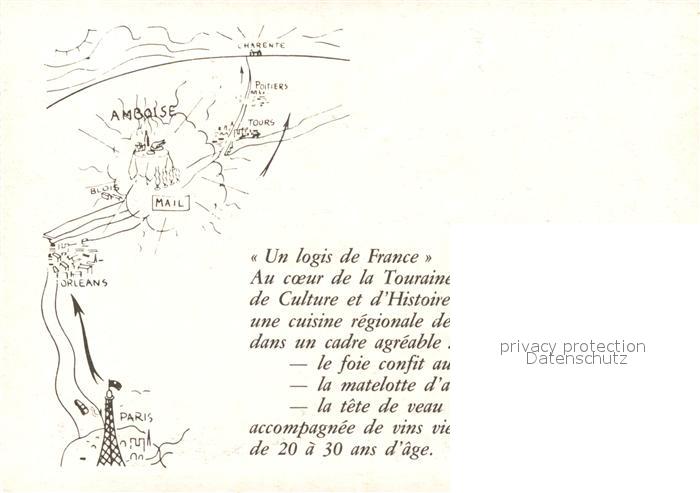 CHARENTE
POITIERS
AMBOISE
TOURS
BLOIS
MAIL
ORLEANS
PARIS
« Un logis de France »
Au cœur de la Touraine
de Culture et d'Histoire
une cuisine régionale de
dans un cadre agréable :
— le foie confit au
— la matelotte d'a
— la tête de veau
accompagnée de vins vie
de 20 à 30 ans d'âge.
privacy protection
Datenschutz